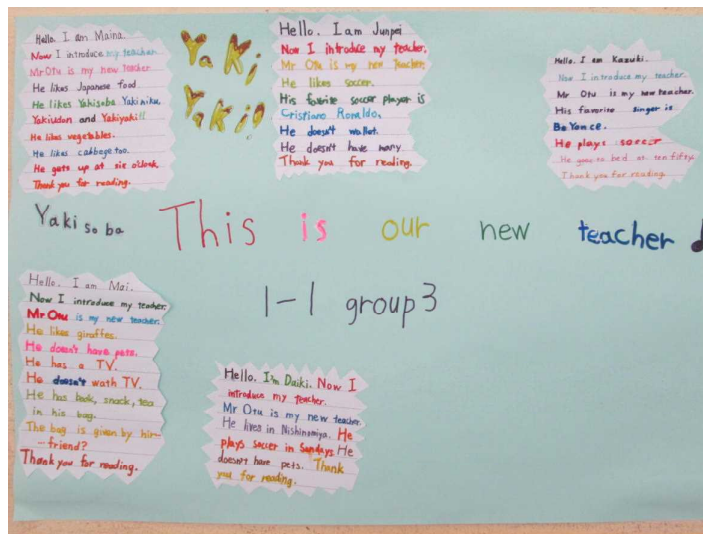 Hello. I am Maina.
Now I introduce my teacher.
Mr Otu is my new teacher
He likes Japanese food.
He likes Yakisoba Yakiniku,
Yakiudon and Yakiyaki!!
He likes vegetables.
He likes cabbege too.
He gets up at six o'clock.
Thank you for reading.
Yaki
Yaki!!
Hello. I am Junpei
Now I introduce my teacher.
Mr Otu is my new teacher.
He likes soccer.
His favorite soccer player is
Cristiano Ronaldo.
He doesn't wallet.
He doesn't have many
Thank you for reading.
Hello. I am Kazuki.
Now I introduce my teacher.
Mr Otu is my new teacher.
His favorite singer is
BeYonce.
He plays soccer
He goes to bed at ten fifty.
Thank you for reading
Yaki soba
This is our new teacher
1-1 group3
Hello. I am Mai.
Now I introduce my teacher.
Mr Otu is my new teacher.
He likes giraffes.
He doesn't have pets.
He has a TV.
He doesn't wath TV.
He has book, snack, tea
in his bag.
The bag is given by hir-
-friend?
Thank you for reading.
Hello. I'm Daiki. Now I
introduce my teacher.
Mr Otu is my new teacher.
He lives in Nishinomiya. He
plays soccer in Sundays. He
doesn't have pets. Thank
you for reading.